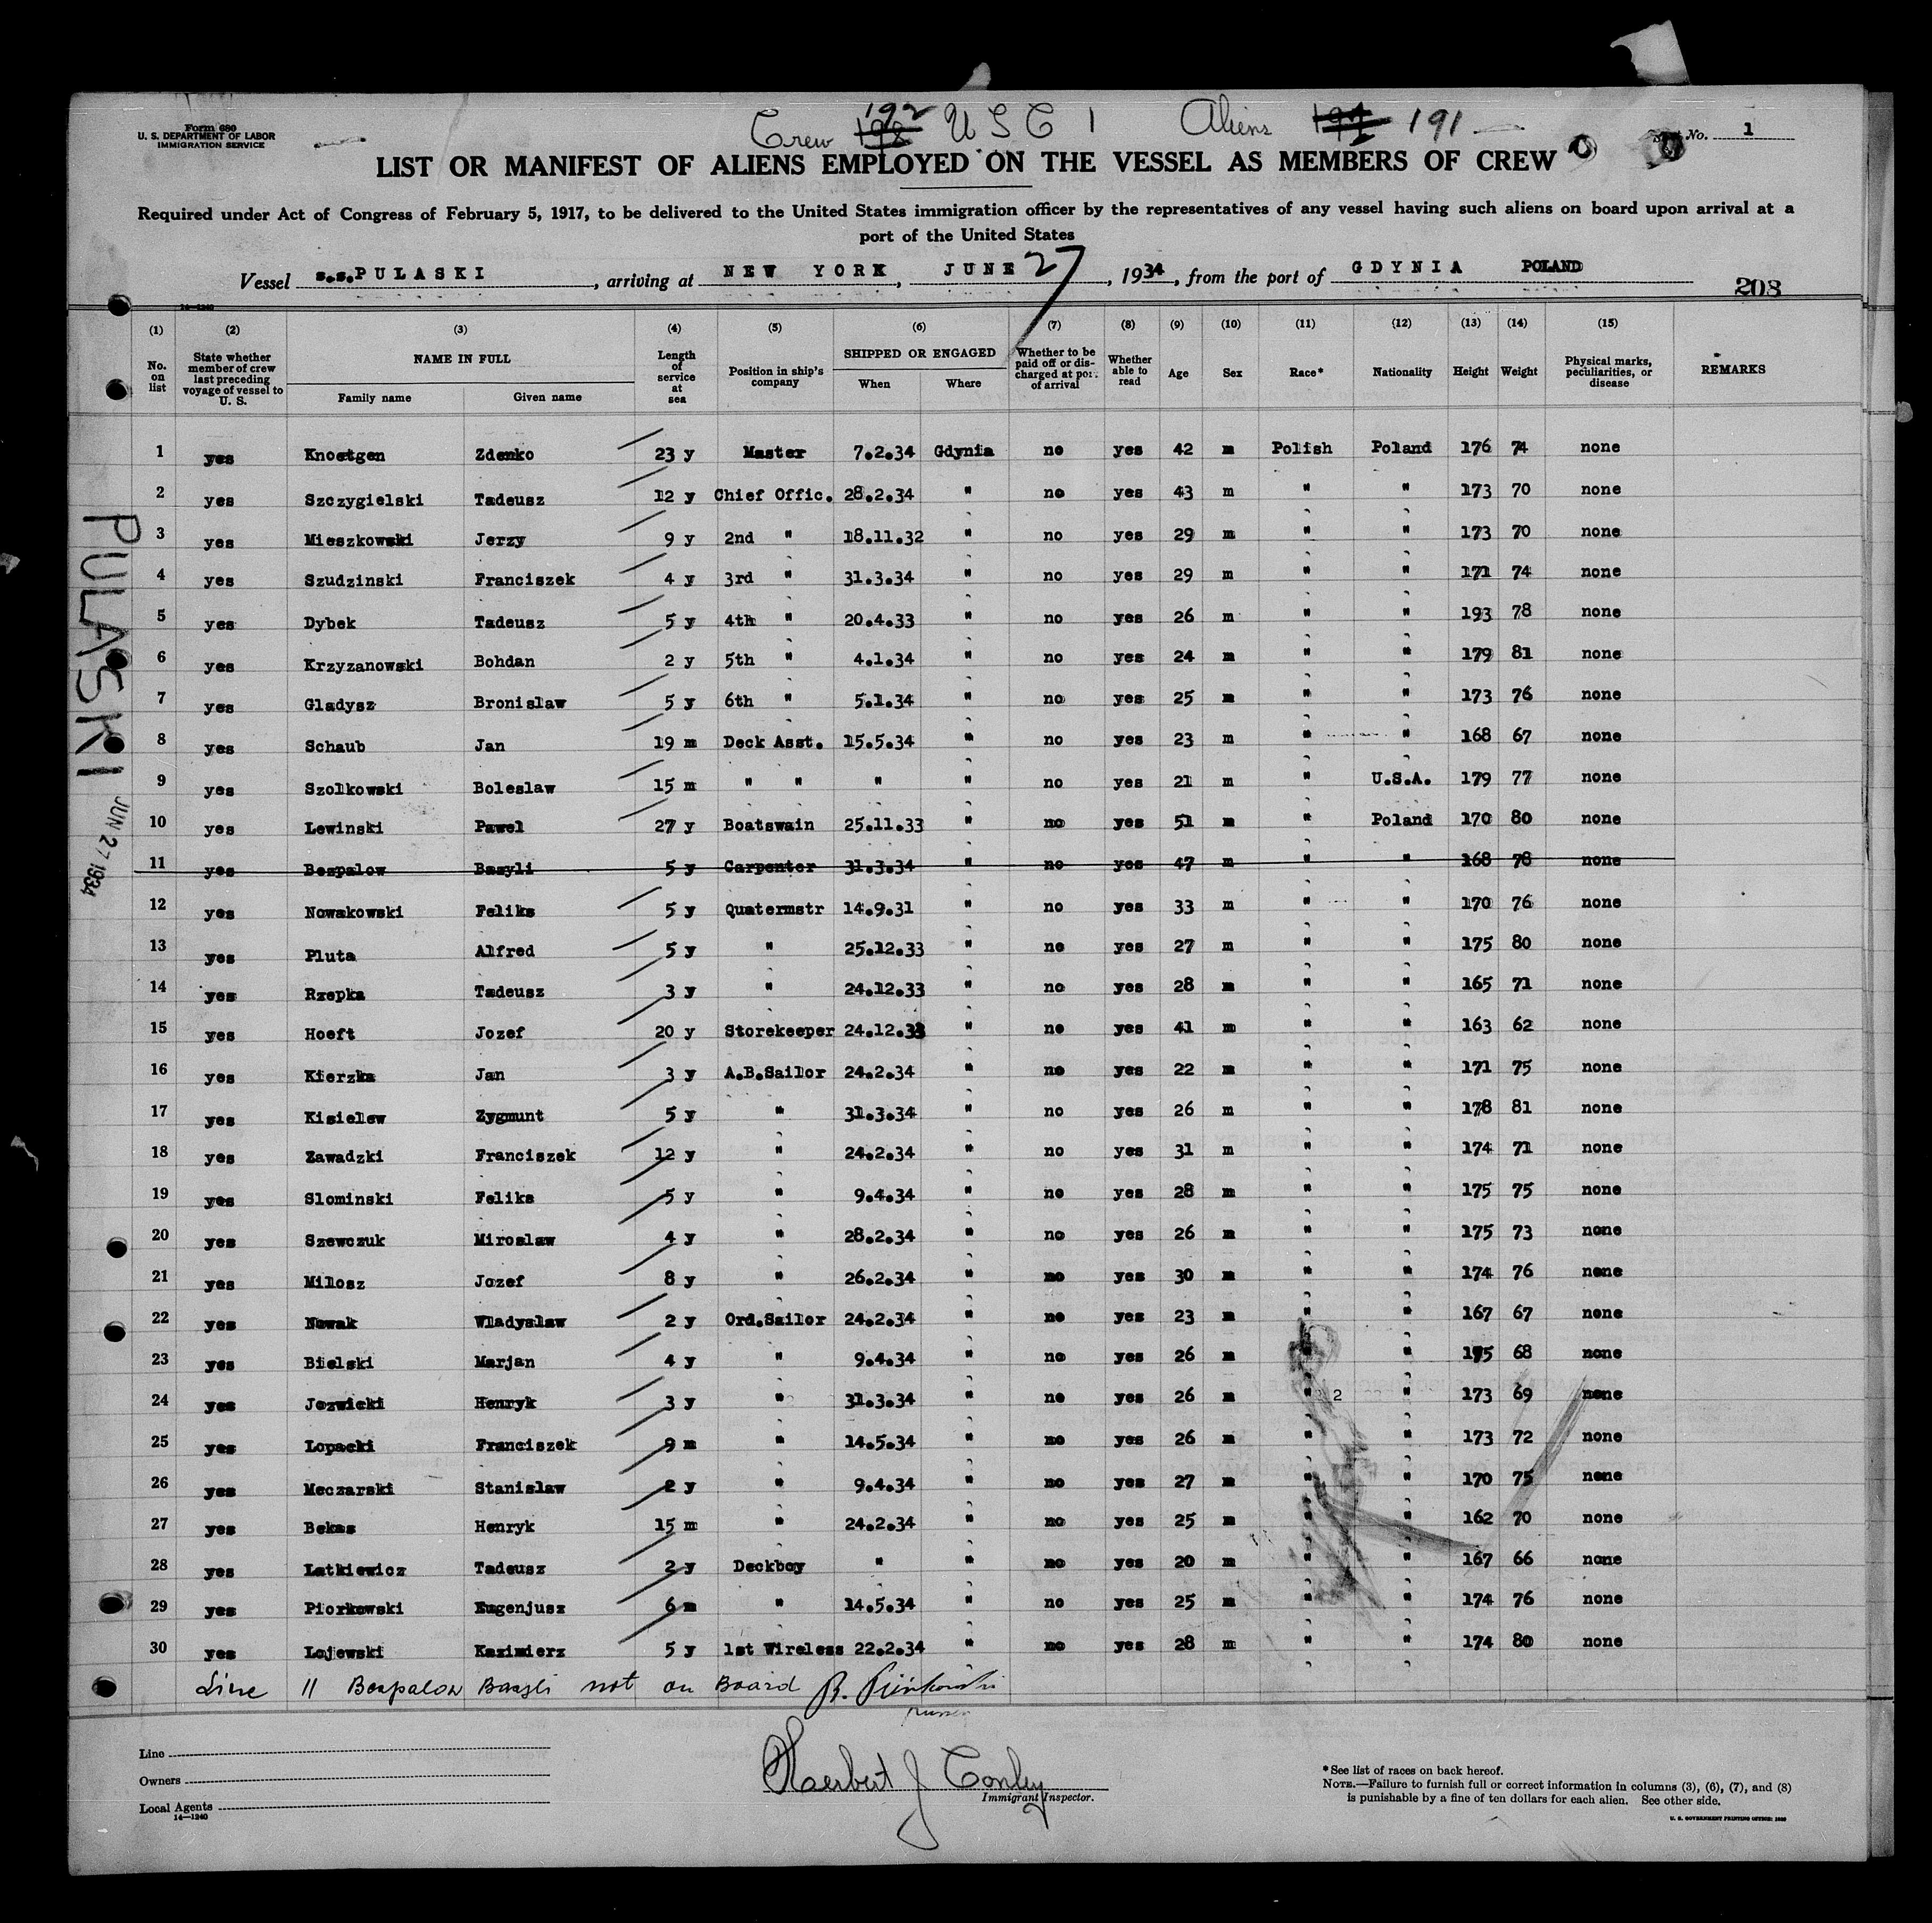 Form 680
U. S. DEPARTMENT OF LABOR
IMMIGRATION SERVICE
Crew 192 U S C 1 Aliens 191
No. 1
LIST OR MANIFEST OF ALIENS EMPLOYED ON THE VESSEL AS MEMBERS OF CREW
Required under Act of Congress of February 5, 1917, to be delivered to the United States immigration officer by the representatives of any vessel having such aliens on board upon arrival at a
port of the United States
Vessel s.s.PULASKI, arriving at NEW YORK, JUNE 27, 1934, from the port of GDYNIA POLAND
208
14—1240
(1) (2) (3) (4) (5) (6) (7) (8) (9) (10) (11) (12) (13) (14) (15)
No. on list State whether member of crew last preceding voyage of vessel to U. S. NAME IN FULL Family name Given name Length of service at sea Position in ship's company SHIPPED OR ENGAGED When Where Whether to be paid off or discharged at port of arrival Whether able to read Age Sex Race* Nationality Height Weight Physical marks, peculiarities, or disease REMARKS
1 yes Knoetgen Zdenko 23 y Master 7.2.34 Gdynia no yes 42 m Polish Poland 176 74 none
2 yes Szczygielski Tadeusz 12 y Chief Offic. 28.2.34 " no yes 43 m " " 173 70 none
3 yes Mieszkowski Jerzy 9 y 2nd " 18.11.32 " no yes 29 m " " 173 70 none
4 yes Szudzinski Franciszek 4 y 3rd " 31.3.34 " no yes 29 m " " 171 74 none
5 yes Dybek Tadeusz 5 y 4th " 20.4.33 " no yes 26 m " " 193 78 none
6 yes Krzyzanowski Bohdan 2 y 5th " 4.1.34 " no yes 24 m " " 179 81 none
7 yes Gladysz Bronislaw 5 y 6th " 5.1.34 " no yes 25 m " " 173 76 none
8 yes Schaub Jan 19 m Deck Asst. 15.5.34 " no yes 23 m " " 168 67 none
9 yes Szolkowski Boleslaw 15 m " " " " no yes 21 m " U.S.A. 179 77 none
10 yes Lewinski Pawel 27 y Boatswain 25.11.33 " no yes 51 m " Poland 170 80 none
11 yes Bespalow Bazyli 5 y Carpenter 31.3.34 " no yes 47 m " " 168 78 none
12 yes Nowakowski Feliks 5 y Quatermstr 14.9.31 " no yes 33 m " " 170 76 none
13 yes Pluta Alfred 5 y " 25.12.33 " no yes 27 m " " 175 80 none
14 yes Rzepka Tadeusz 3 y " 24.12.33 " no yes 28 m " " 165 71 none
15 yes Hoeft Jozef 20 y Storekeeper 24.12.33 " no yes 41 m " " 163 62 none
16 yes Kierzka Jan 3 y A.B.Sailor 24.2.34 " no yes 22 m " " 171 75 none
17 yes Kisielew Zygmunt 5 y " 31.3.34 " no yes 26 m " " 178 81 none
18 yes Zawadzki Franciszek 12 y " 24.2.34 " no yes 31 m " " 174 71 none
19 yes Slominski Feliks 5 y " 9.4.34 " no yes 28 m " " 175 75 none
20 yes Szewczuk Miroslaw 4 y " 28.2.34 " no yes 26 m " " 175 73 none
21 yes Milosz Jozef 8 y " 26.2.34 " no yes 30 m " " 174 76 none
22 yes Nowak Wladyslaw 2 y Ord.Sailor 24.2.34 " no yes 23 m " " 167 67 none
23 yes Bielski Marjan 4 y " 9.4.34 " no yes 26 m " " 175 68 none
24 yes Jozwicki Henryk 3 y " 31.3.34 " no yes 26 m " 2 " 173 69 none
25 yes Lopacki Franciszek 9 m " 14.5.34 " no yes 26 m " " 173 72 none
26 yes Meczarski Stanislaw 2 y " 9.4.34 " no yes 27 m " " 170 75 none
27 yes Bekas Henryk 15 m " 24.2.34 " no yes 25 m " " 162 70 none
28 yes Latkiewicz Tadeusz 2 y Deckboy " " no yes 20 m " " 167 66 none
29 yes Piorkowski Eugenjusz 6 m " 14.5.34 " no yes 25 m " " 174 76 none
30 yes Lojewski Kazimierz 5 y 1st Wireless 22.2.34 " no yes 28 m " " 174 80 none
Line 11 Bespalow Bazyli not on Board
PULASKI
JUN 27 1934
Line
Owners
Local Agents
14—1240
Herbert J Conley
Immigrant Inspector.
*See list of races on back hereof.
NOTE.—Failure to furnish full or correct information in columns (3), (6), (7), and (8)
is punishable by a fine of ten dollars for each alien. See other side.
U. S. GOVERNMENT PRINTING OFFICE: